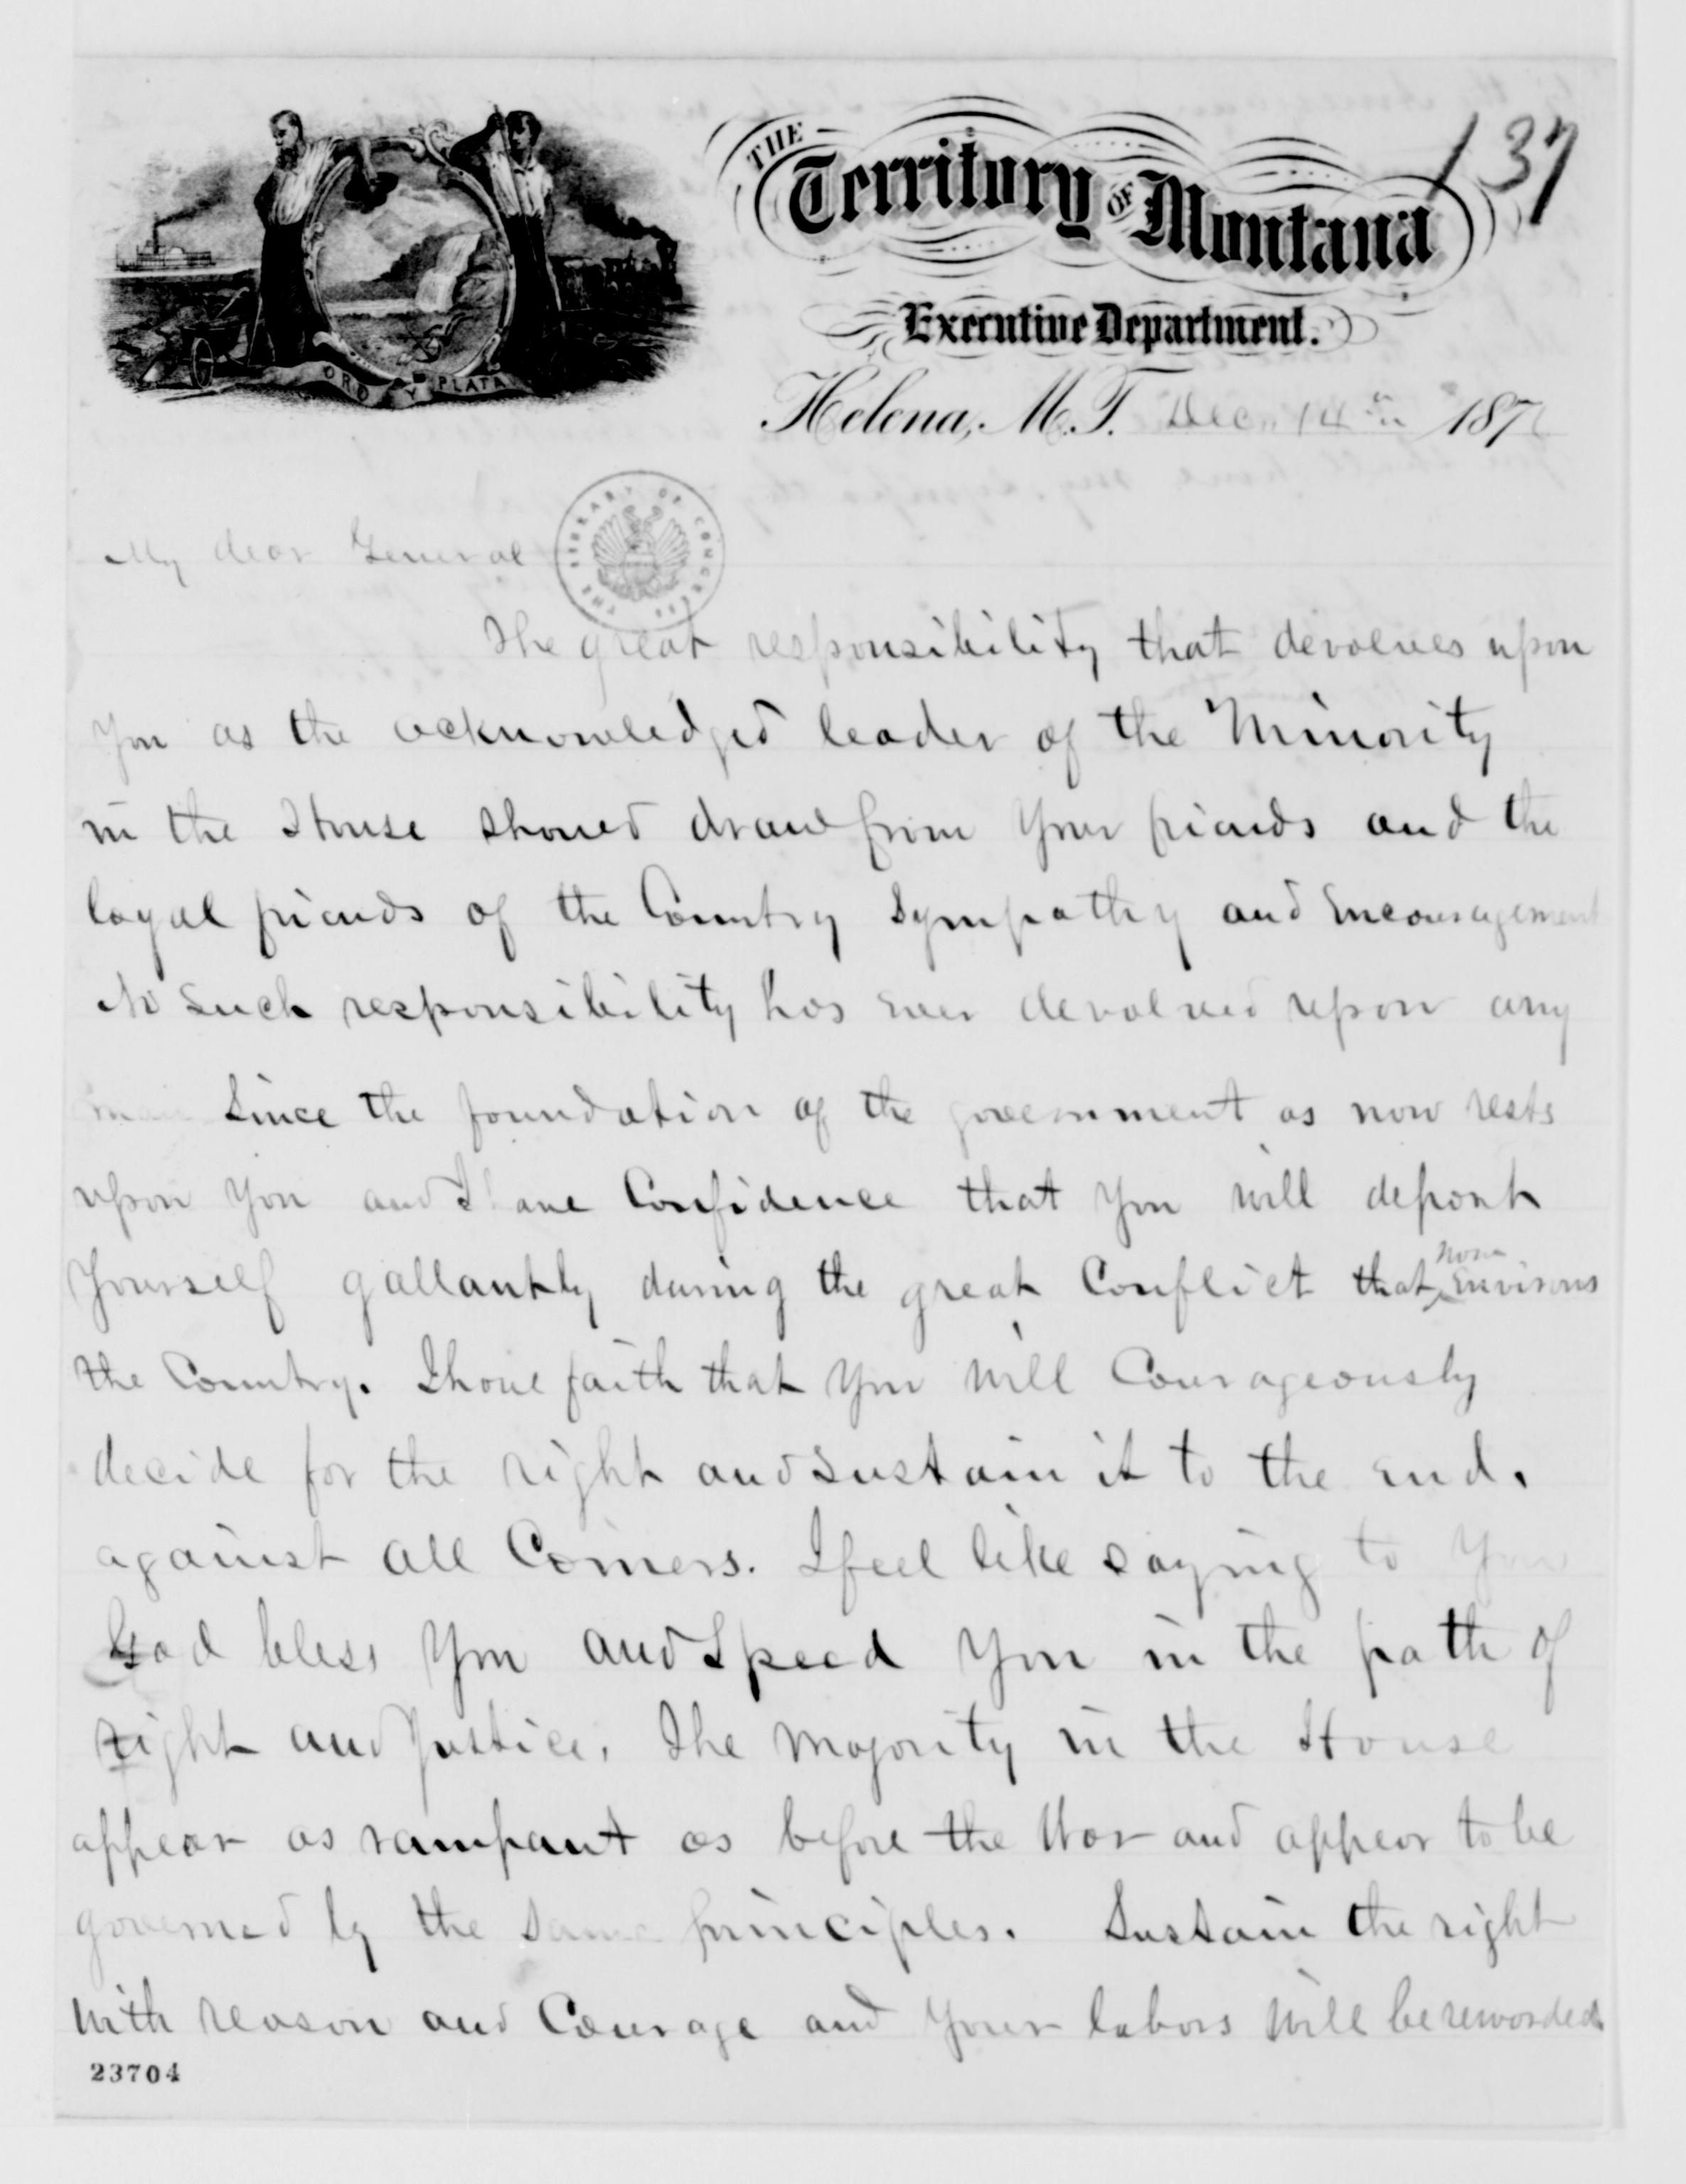 137
THE Territory OF Montana
Executive Department.
ORO Y PLATA
Helena, M.T. Dec. 14th 187
THE LIBRARY OF CONGRESS
My dear General
The great responsibility that devolves upon
you as the acknowledged leader of the Minority
in the House should draw from your friends and the
loyal friends of the Country Sympathy and Encouragement
No such responsibility has ever devolved upon any
man Since the foundation of the government as now rests
upon you and I have Confidence that you will deport
yourself gallantly during the great Conflict that now Environs
the Country. I have faith that you will Courageously
decide for the right and sustain it to the end.
against all Comers. I feel like saying to you
God bless you and Speed you in the path of
right and Justice. The Majority in the House
appear as rampant as before the War and appear to be
governed by the same principles. Sustain the right
With reason and Courage and your labors Will be rewarded
23704